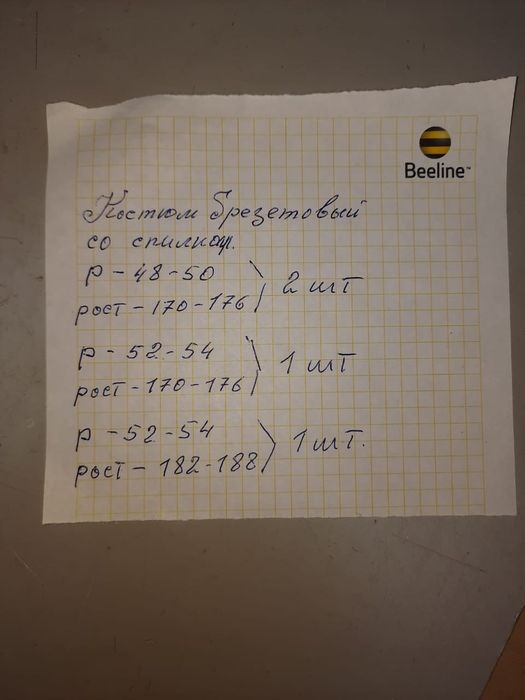 Beeline™
Костюм брезетовый
со спилком.
р - 48-50
рост - 170-176
2 шт
р - 52-54
рост - 170-176
1 шт
р - 52-54
рост - 182-188
1 шт.